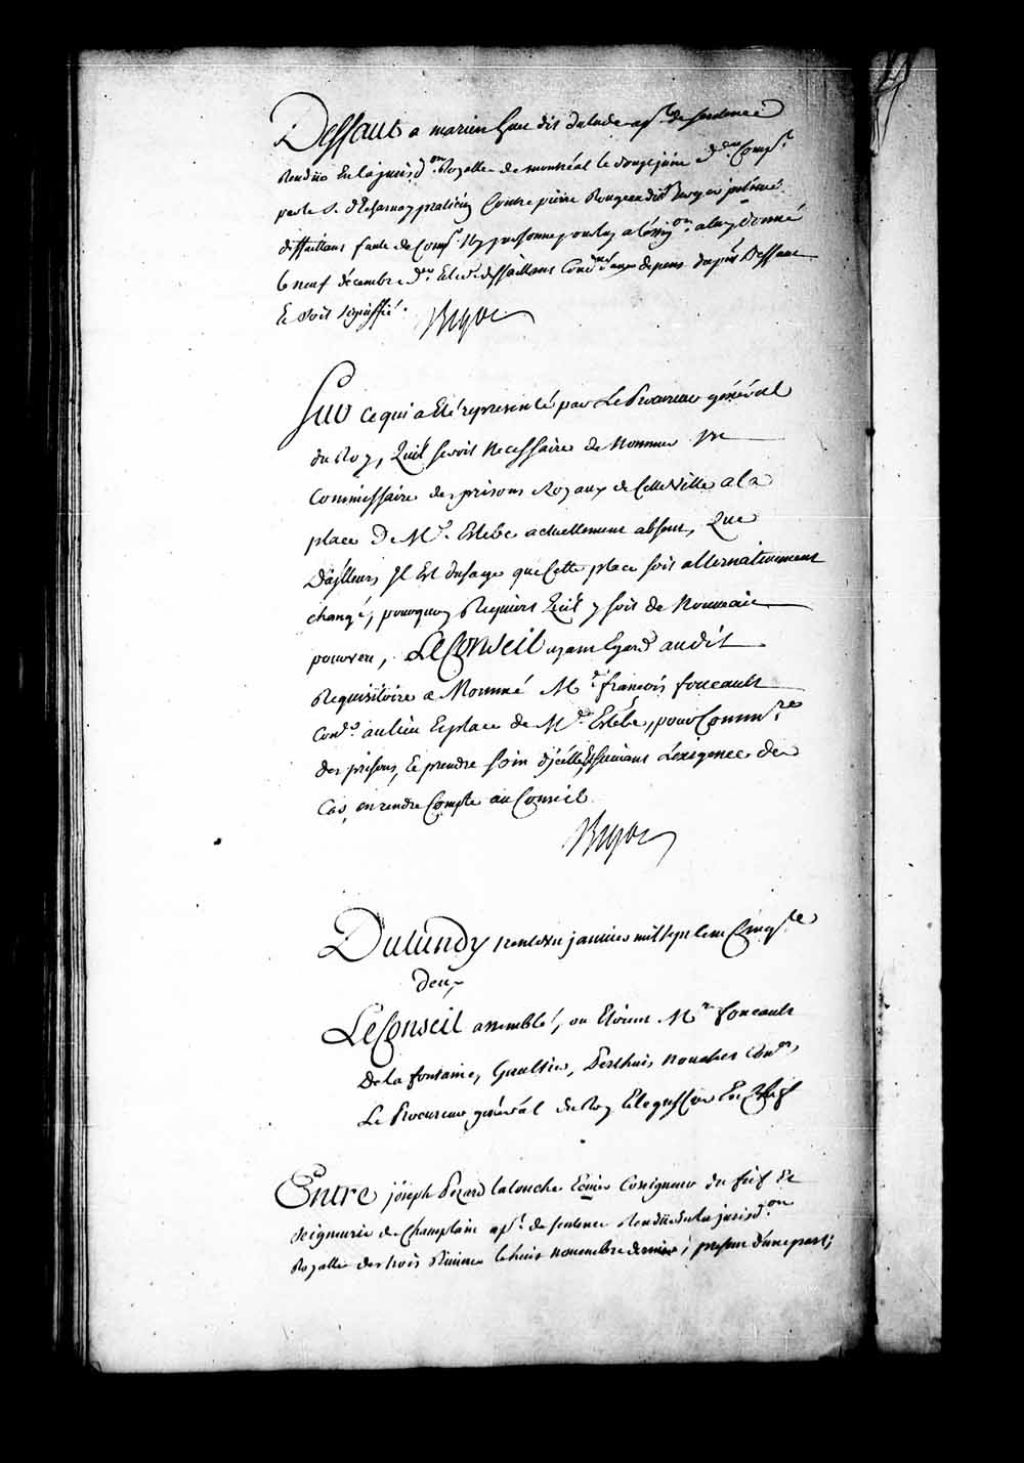 Deffaut a marien huu dit Dalude apt. de sentence
Rendüe En la jurisd.on Royalle de montréal le douze juin d.er Comp.t
par le S. dEcharnay praticien Contre pierre Rougeau dit Berger intimé
deffaillant faute de Comp.r Ny personne pour luy a l'assig.on a luy donné
le neuf décembre d.er Et led. deffaillant Cond.né aux depens du p.nt Deffaut
Et soit signiffié. Bigot
Sur ce qui a Eté representé par Le Procureur général
du Roy, Quil seroit Necessaire de Nommer un
Commissaire des prisons Royaux de Cette Ville a la
place De M.r Estebe actuellement absent, Que
D'ailleurs Il Est d'usage que Cette place soit alternativement
changé, pourquoy Requiert Quil y soit de Nouveau
pourvu, Le Conseil ayant Egard audit
Requisitoire a Nommé M.r françois foucault
Con.er au lieu Et place de M.r Estèbe, pour Comm.re
des prisons, Et prendre soin d'jcelles, Et suivant L'exigence des
Cas, en rendre Compte au Conseil.
Bigot
Du Lundy trente un janvier mil sept Cent Cinq.te
deux
Le Conseil assemblé, ou Etoient M.rs foucault
De la fontaine, Gaultier, Perthuis, nouchet Con.ers,
Le Procureur général du Roy Et le greffier En Chef
Entre joseph Pezard latouche Ecuier Coseigneur du fief Et
seigneurie de Champlain ap.t de sentence Rendüe En la jurisd.on
Royalle des trois Rivieres le huit novembre dernier, présent d'une part;